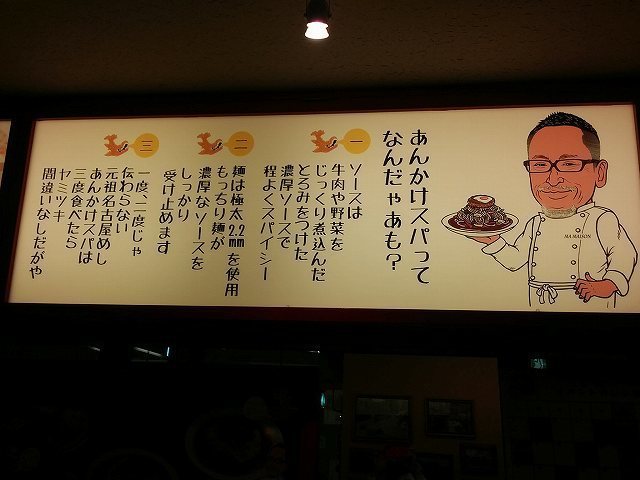 あんかけスパって
なんだゃあも？
一
ソースは
牛肉や野菜を
じっくり煮込んだ
とろみをつけた
濃厚ソースで
程よくスパイシー
二
麺は極太2.2mmを使用
もっちり麺が
濃厚なソースを
しっかり
受け止めます
三
一度、二度じゃ
伝わらない
元祖名古屋めし
あんかけスパは
三度食べたら
ヤミツキ
間違いなしだがや
MA MAISON